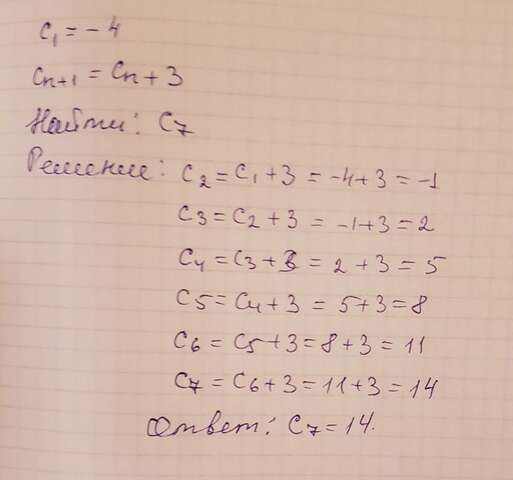 c₁ = -4
cₙ₊₁ = cₙ + 3
Найти: c₇
Решение: c₂ = c₁ + 3 = -4 + 3 = -1
c₃ = c₂ + 3 = -1 + 3 = 2
c₄ = c₃ + 3 = 2 + 3 = 5
c₅ = c₄ + 3 = 5 + 3 = 8
c₆ = c₅ + 3 = 8 + 3 = 11
c₇ = c₆ + 3 = 11 + 3 = 14
Ответ: c₇ = 14.